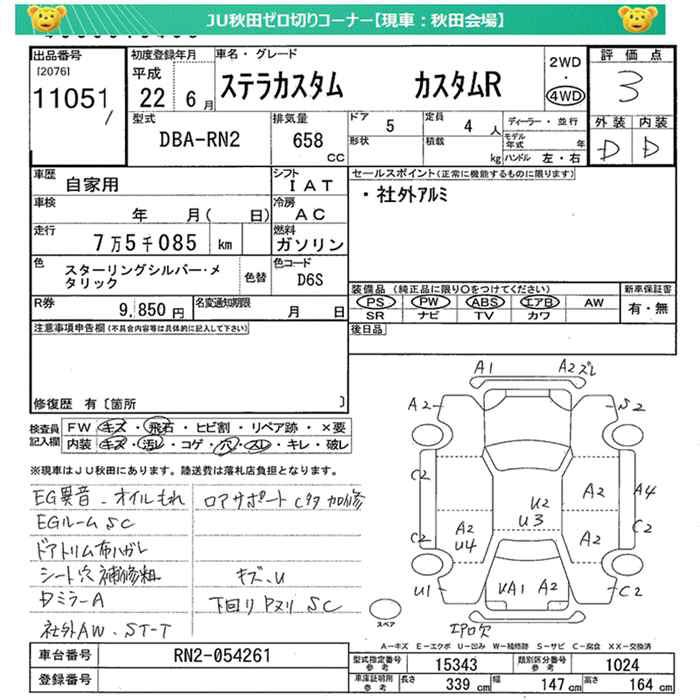 JU秋田ゼロ切りコーナー【現車：秋田会場】
出品番号 [2076] 11051
初度登録年月 平成 22年 6月
車名・グレード ステラカスタム カスタムR
2WD・4WD
評価点 3
外装 D 内装 D
型式 DBA-RN2
排気量 658 CC
ドア 5 定員 4人
形状 積載 kg
ディーラー・並行
モデル年式 年
ハンドル 左・右
車歴 自家用
シフト IAT
車検 年 月( 日)
冷房 AC
走行 7万5千085 km
燃料 ガソリン
色 スターリングシルバー・メタリック 色替
色コード D6S
R券 9,850円
名変通知期限 月 日
セールスポイント(正常に機能するものに限ります)
・社外アルミ
装備品 (純正品に限り○をつけてください)
PS PW ABS エアB AW
SR ナビ TV カワ
新車保証書 有・無
後日品
注意事項申告欄(不具合内容等は具体的に記入して下さい)
修復歴 有 [箇所 ]
検査員記入欄
FW キズ・飛石・ヒビ割・リペア跡・×要
内装 キズ・汚レ・コゲ・穴・スレ・キレ・破レ
※現車はJU秋田にあります。陸送費は落札店負担となります。
EG異音、オイルもれ
EGルームSC
ドアトリム布ハガレ
シート穴 補修粗
Dミラー A
社外AW、ST-T
ロアサポート Cタタ 加修
キズ、U
下回り Pヌリ SC
A1 A2ズレ
A2 S2
C2 A2 A4
U2
U3
A2 U4 A2 C2
U1 UA1 A2 C2
エアロ欠
スペア
A－キズ E－エクボ U－凹み W－補修跡 S－サビ C－腐食 XX－交換済
車台番号 RN2-054261
登録番号
型式指定番号 参考 15343
類別区分番号 参考 1024
車庫証明用 参考 長さ 339 cm 幅 147 cm 高さ 164 cm